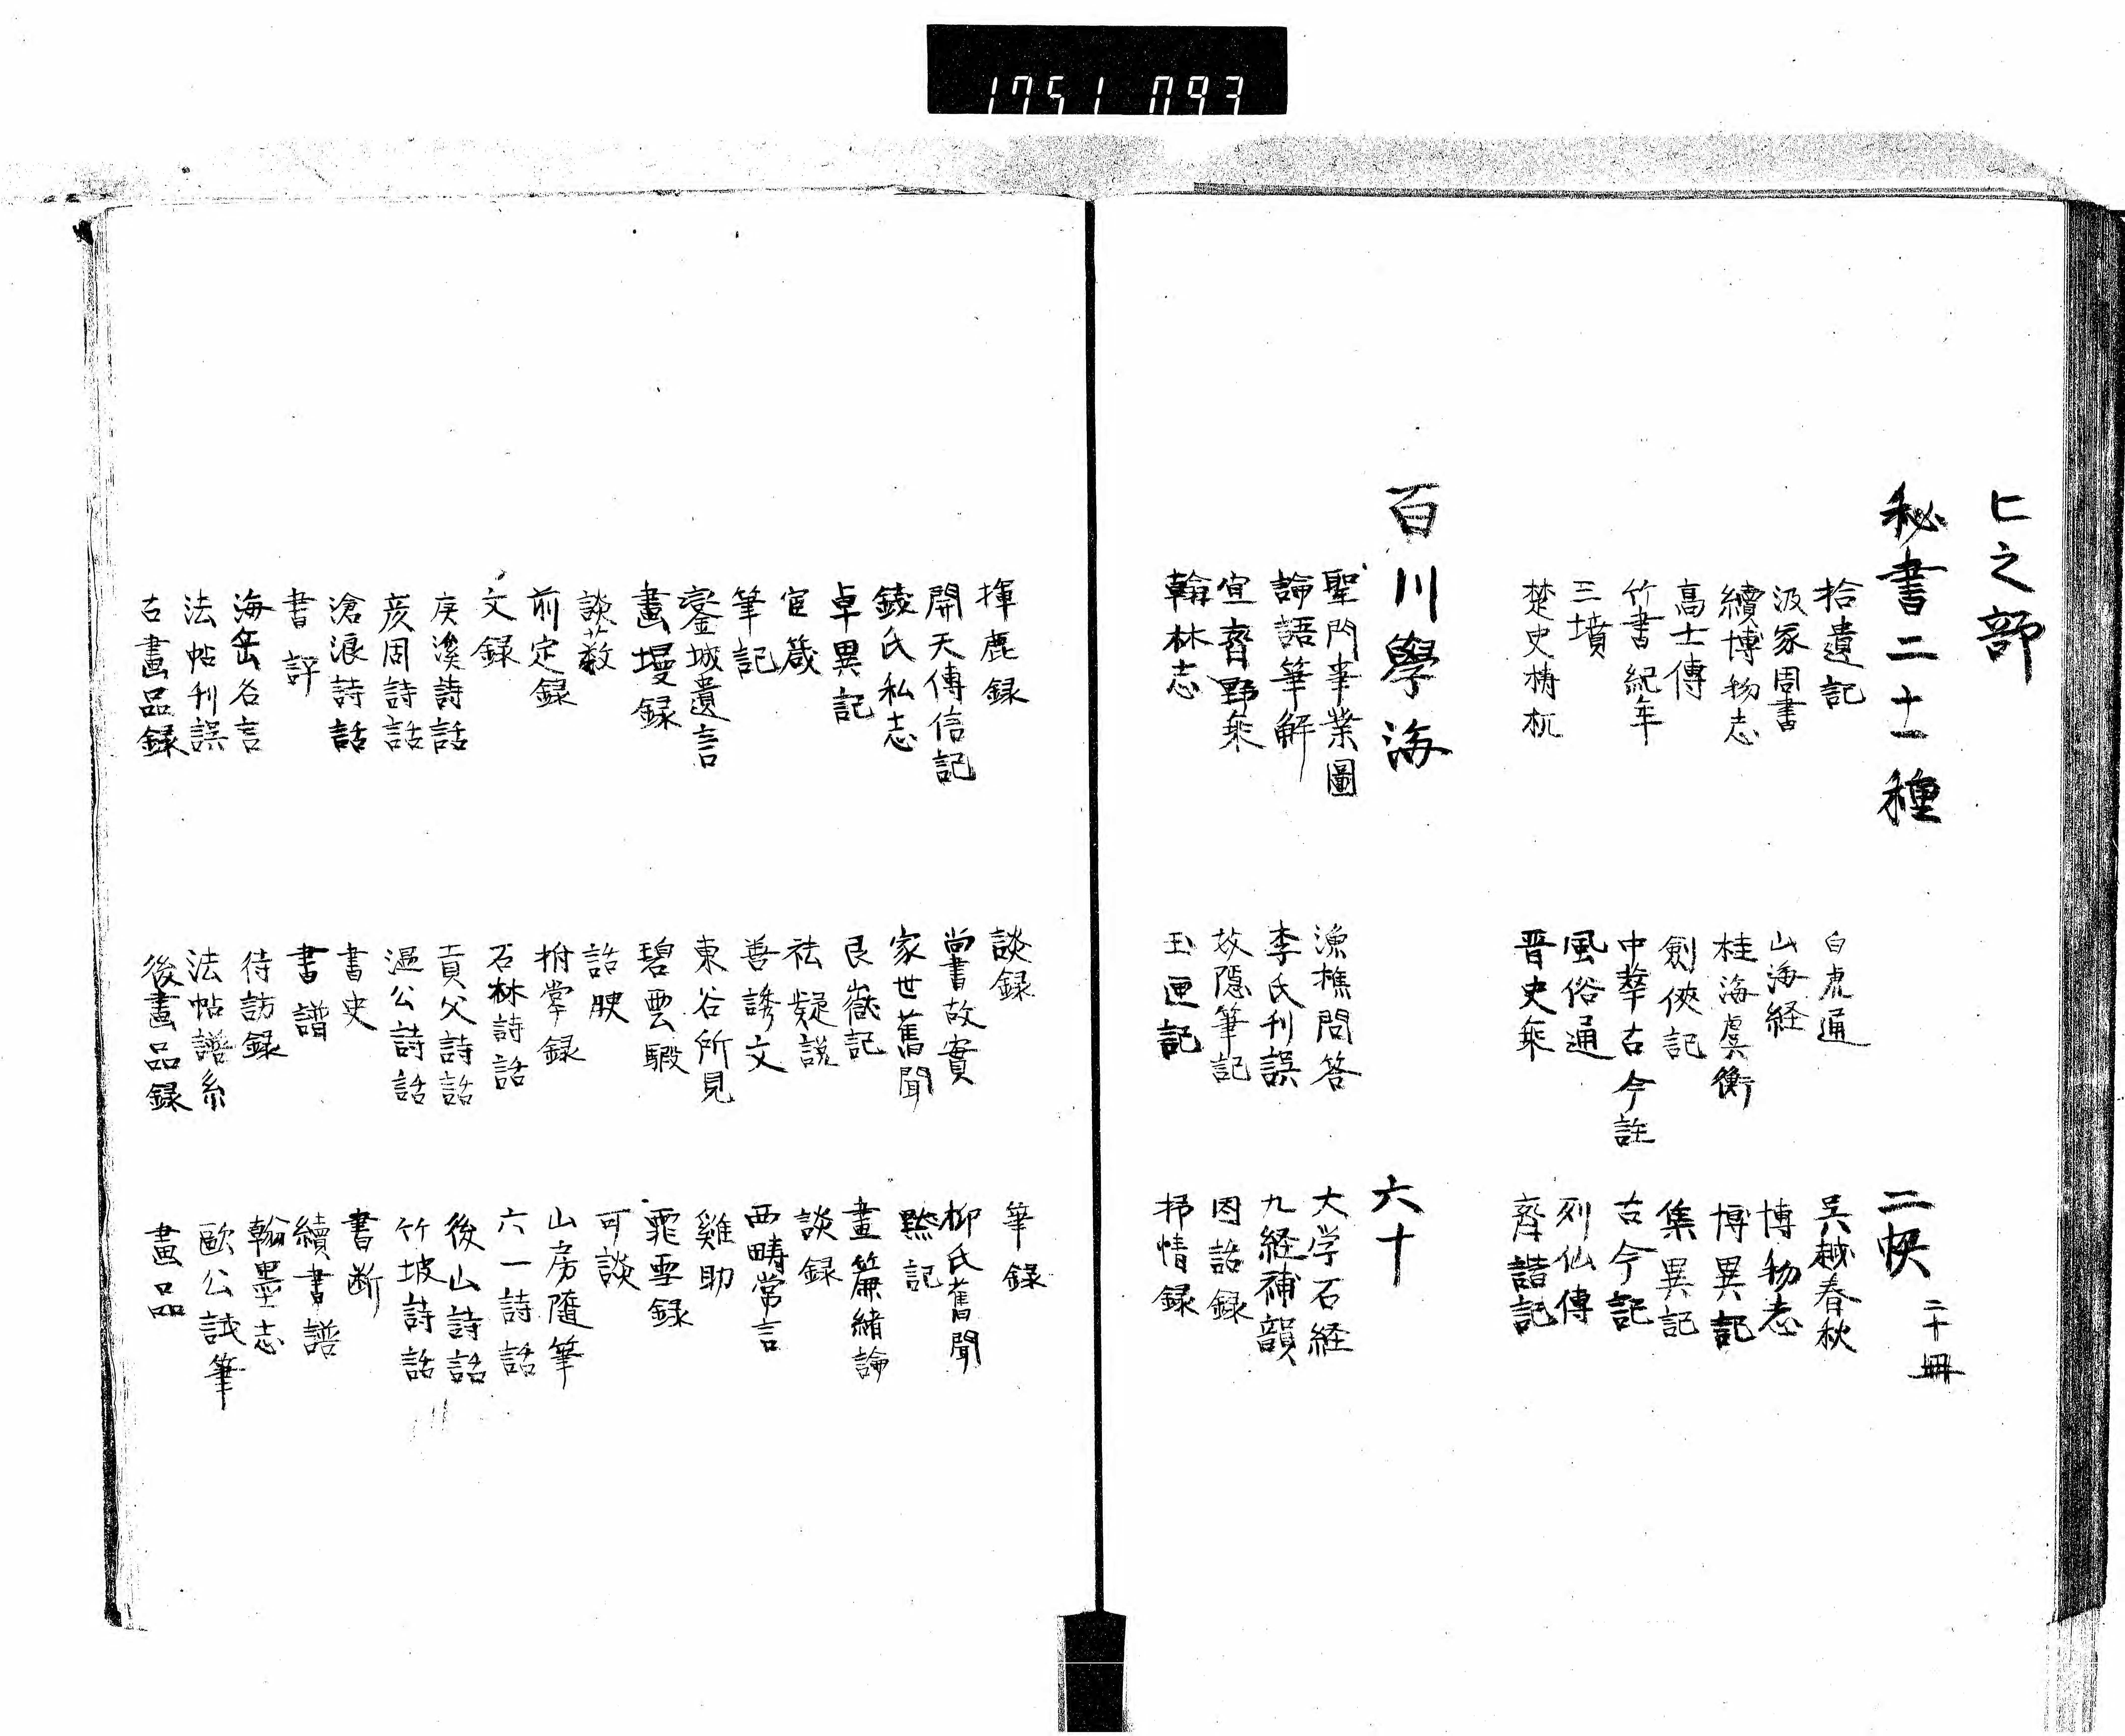 1751 093
ヒ之部
秘書二十一種 二帙 二十冊
拾遺記 白虎通 呉越春秋
汲冢周書 山海経 博物志
續博物志 桂海虞衡 博異記
高士傳 劍俠記 集異記
竹書紀年 中華古今註 古今記
三墳 風俗通 列仙傳
楚史梼杌 晋史乗 齊諧記
百川學海 六十
聖門事業圖 漁樵問答 大学石経
論語筆解 李氏刊誤 九経補韻
宜齊野乗 放隠筆記 因話録
翰林志 玉匣記 掃情録
揮麈録 談録 筆録
開天傳信記 尚書故實 柳氏舊聞
錢氏私志 家世舊聞 黙記
卓異記 艮嶽記 畫簾緒論
官箴 祛疑説 談録
筆記 善誘文 西疇常言
鑾城遺言 東谷所見 雞助
畫墁録 碧雲騢 霏雪録
談薮 諮腴 可談
前定録 拊掌録 山房随筆
文録 石林詩話 六一詩話
庚溪詩話 貢父詩話 後山詩話
彦周詩話 温公詩話 竹坡詩話
滄浪詩話 書史 書断
書評 書譜 續書譜
海岳名言 待訪録 翰墨志
法帖刊誤 法帖譜系 歐公試筆
古畫品録 後畫品録 畫品